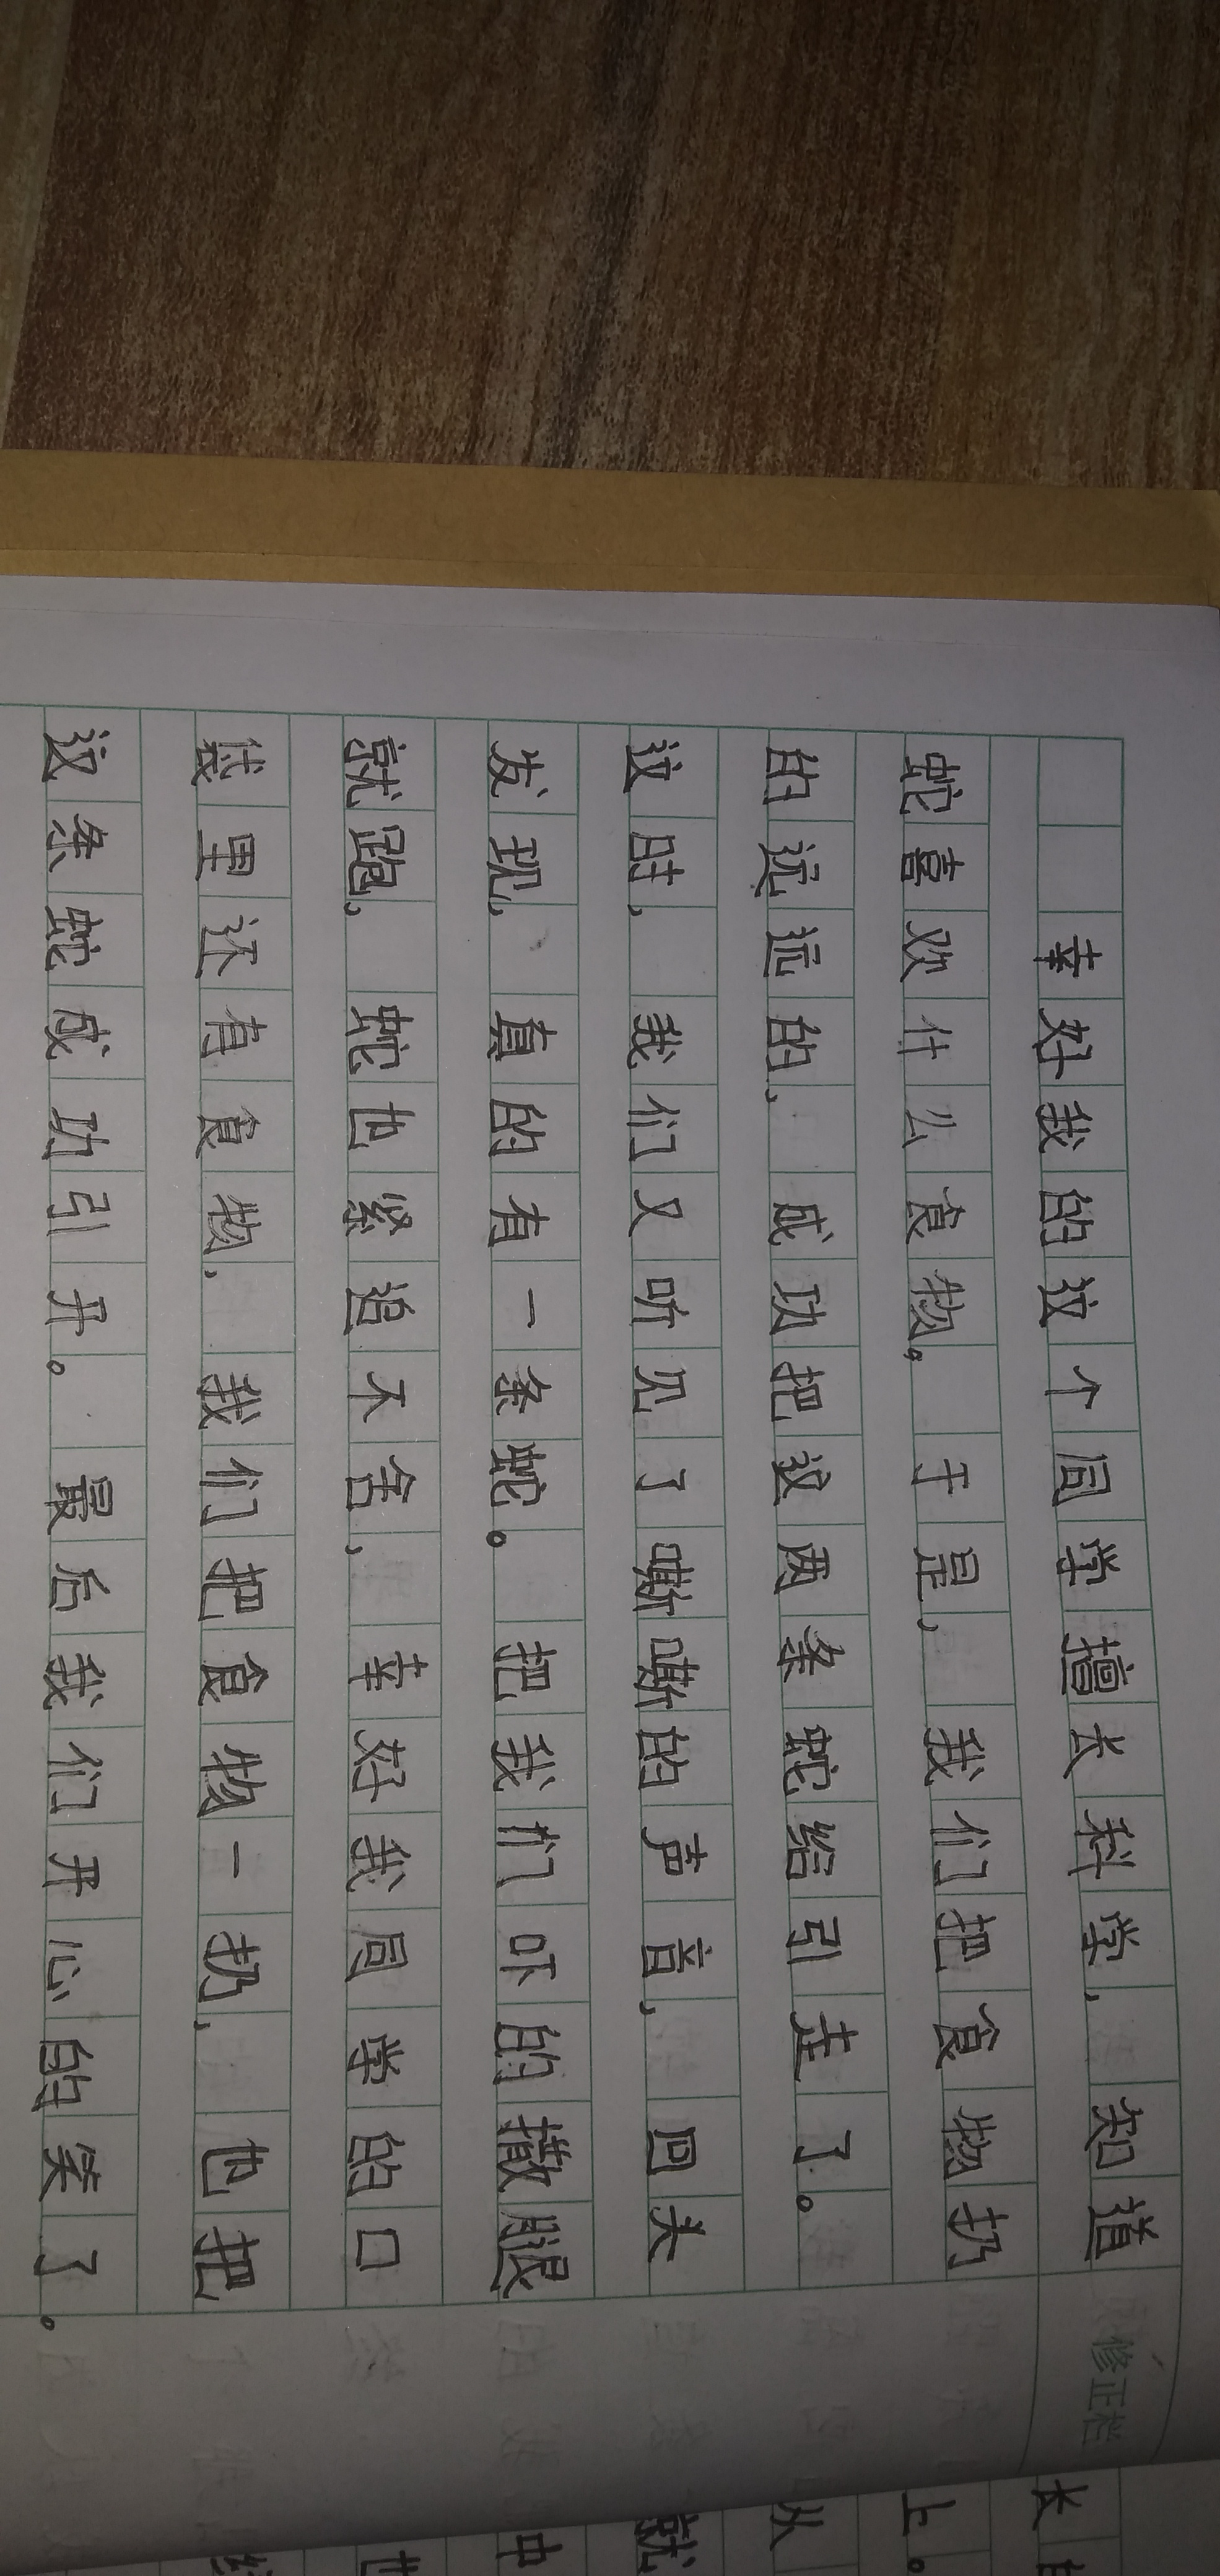 幸好我的这个同学擅长科学，知道
蛇喜欢什么食物。于是，我们把食物扔
的远远的，成功把这两条蛇给引走了。
这时，我们又听见了嘶嘶的声音，回头
发现，真的有一条蛇。把我们吓的撒腿
就跑，蛇也紧追不舍，幸好我同学的口
袋里还有食物，我们把食物一扔，也把
这条蛇成功引开。最后我们开心的笑了。
修正栏
长
上。
从
就
中
世